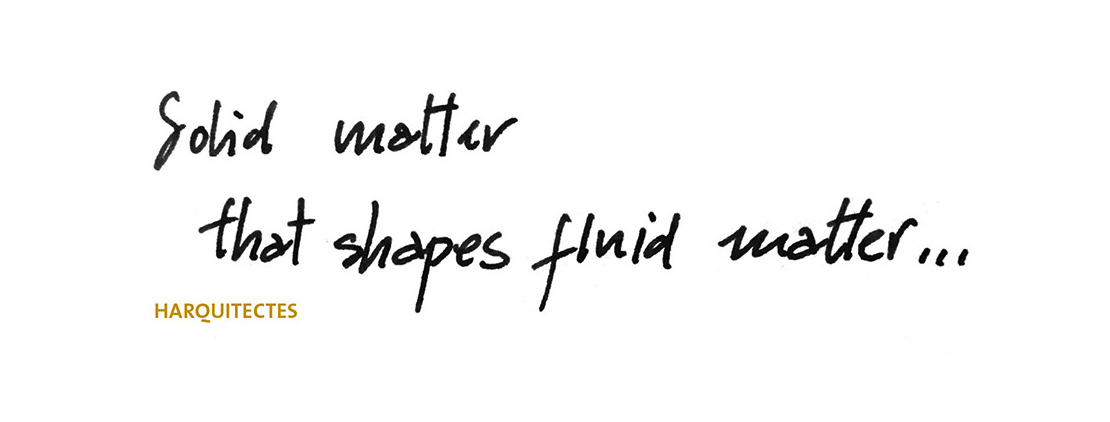 Solid matter
that shapes fluid matter...
HARQUITECTES